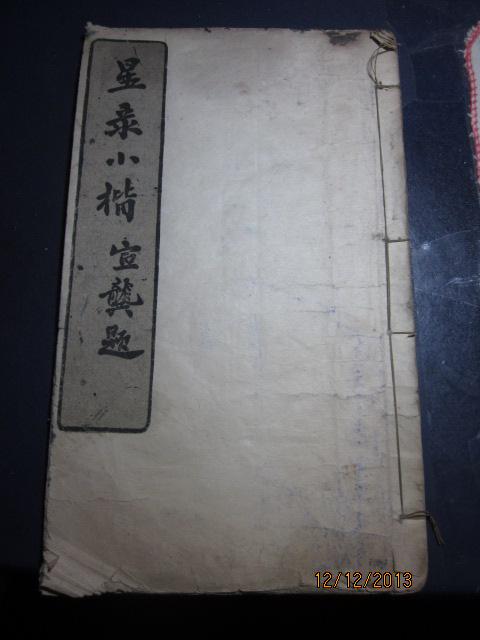 星彔小楷 宣龔題
12/12/2013